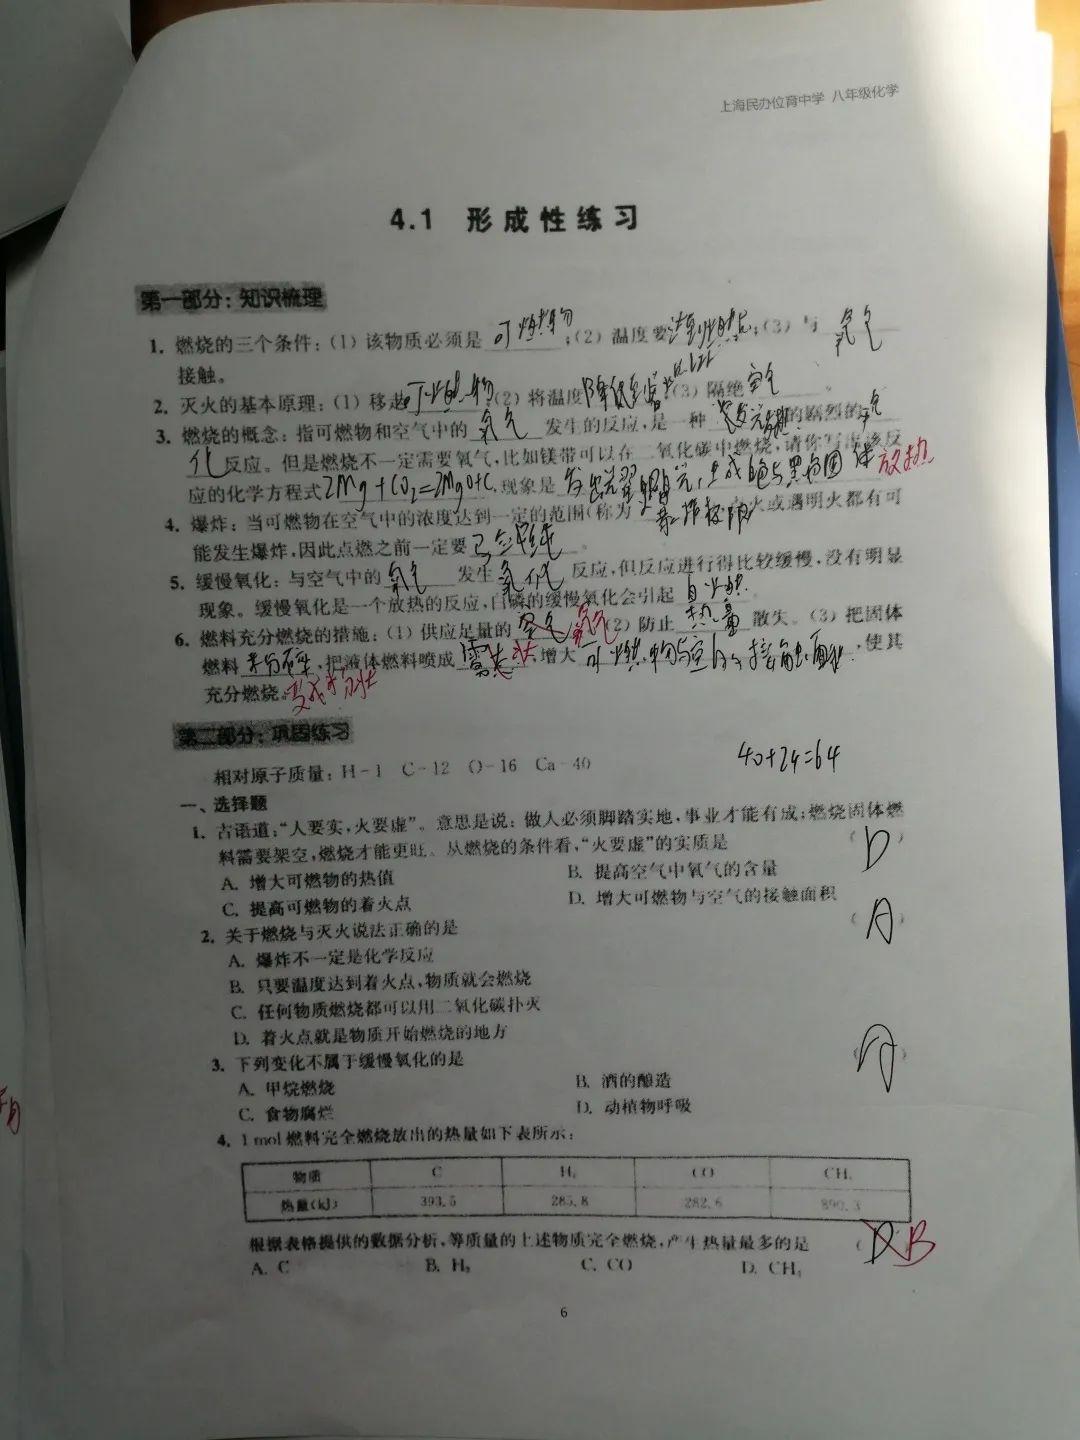 上海民办位育中学 八年级化学
4.1 形成性练习
第一部分：知识梳理
1. 燃烧的三个条件：(1) 该物质必须是 可燃物 ；(2) 温度要达到燃点；(3) 与 氧气
接触。
2. 灭火的基本原理：(1) 移走可燃物 (2) 将温度降低到着火点以下 (3) 隔绝 空气 。
3. 燃烧的概念：指可燃物和空气中的 氧气 发生的反应，是一种 发光放热的剧烈的 氧
化反应。但是燃烧不一定需要氧气，比如镁带可以在二氧化碳中燃烧，请你写出该反
应的化学方程式2Mg+CO₂=2MgO+C，现象是 发出光 生成白色与黑色固体 放热
4. 爆炸：当可燃物在空气中的浓度达到一定的范围(称为 爆炸极限 点火或遇明火都有可
能发生爆炸，因此点燃之前一定要 验纯 。
5. 缓慢氧化：与空气中的 氧气 发生 氧化 反应，但反应进行得比较缓慢，没有明显
现象。缓慢氧化是一个放热的反应，白磷的缓慢氧化会引起 自燃.
6. 燃料充分燃烧的措施：(1) 供应足量的 空气 氧气 (2) 防止 热量 散失。(3) 把固体
燃料 粉碎，把液体燃料喷成 雾状 状，增大 可燃物与空气的接触面积，使其
充分燃烧。变成粉状
第二部分：巩固练习
40+24=64
相对原子质量：H-1 C-12 O-16 Ca-40
一、选择题
1. 古语道：“人要实，火要虚”。意思是说：做人必须脚踏实地，事业才能有成；燃烧固体燃
料需要架空，燃烧才能更旺。从燃烧的条件看，“火要虚”的实质是 ( D )
A. 增大可燃物的热值 B. 提高空气中氧气的含量
C. 提高可燃物的着火点 D. 增大可燃物与空气的接触面积
2. 关于燃烧与灭火说法正确的是 ( A )
A. 爆炸不一定是化学反应
B. 只要温度达到着火点，物质就会燃烧
C. 任何物质燃烧都可以用二氧化碳扑灭
D. 着火点就是物质开始燃烧的地方
3. 下列变化不属于缓慢氧化的是 ( A )
A. 甲烷燃烧 B. 酒的酿造
C. 食物腐烂 D. 动植物呼吸
4. 1 mol 燃料完全燃烧放出的热量如下表所示：
物质 C H₂ CO CH₄
热量(kJ) 393.5 285.8 282.6 890.3
根据表格提供的数据分析，等质量的上述物质完全燃烧，产生热量最多的是 ( D B
A. C B. H₂ C. CO D. CH₄
6